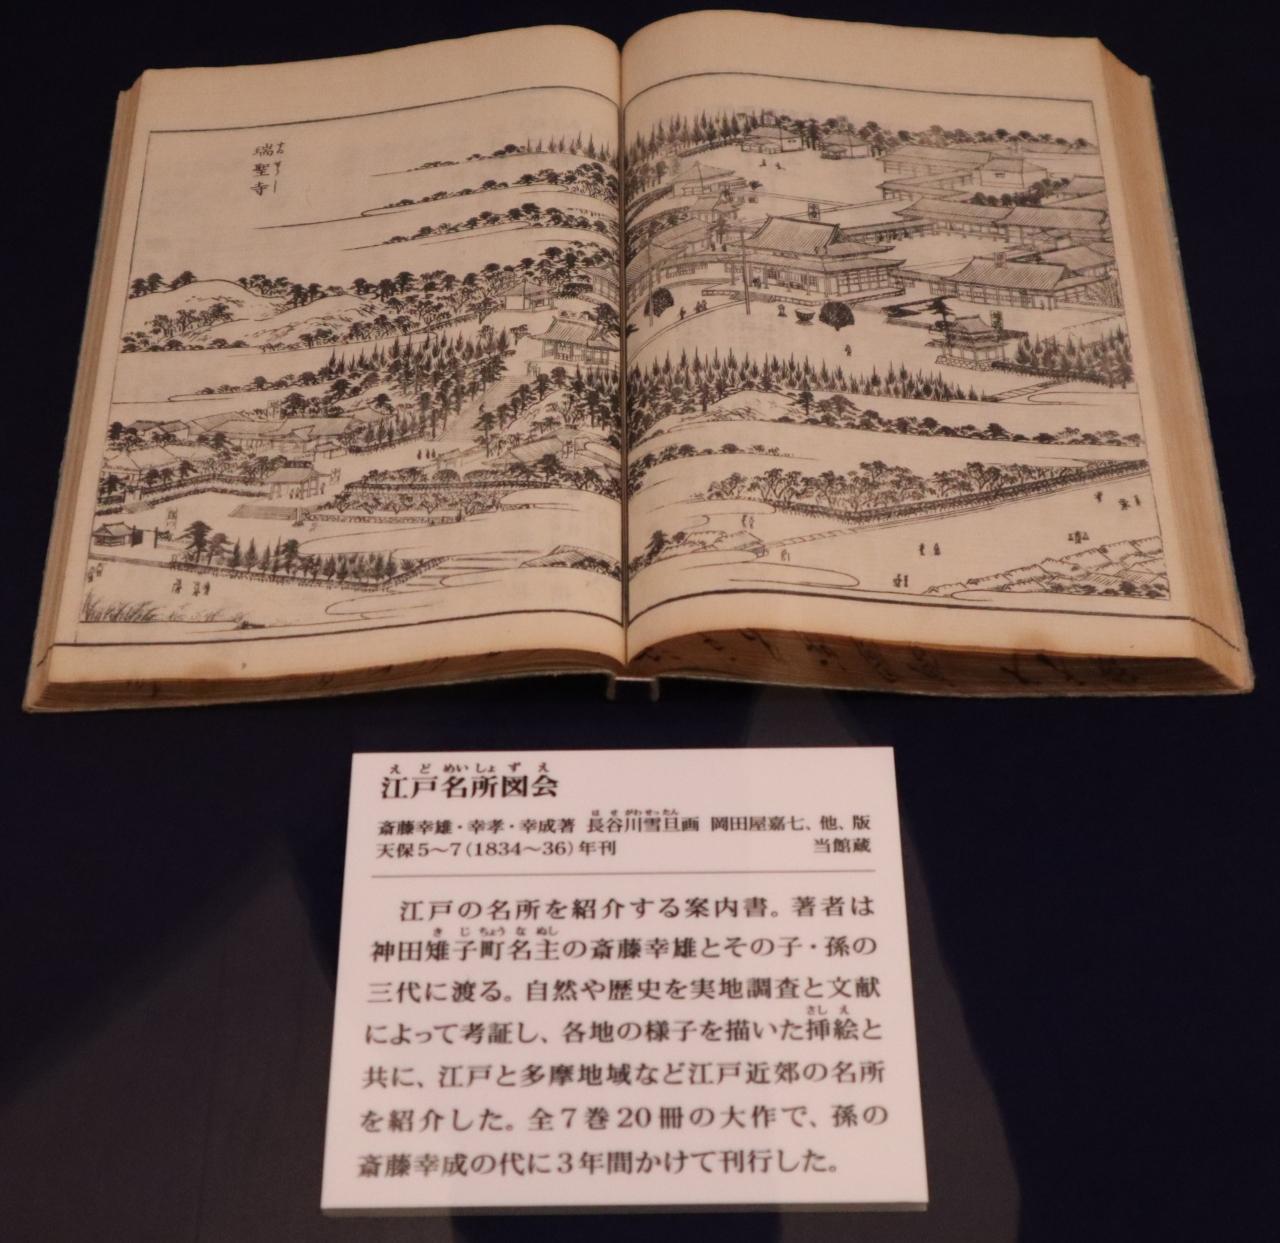 瑞聖寺
江戸名所図会
えどめいしょずえ
斎藤幸雄・幸孝・幸成著 長谷川雪旦画 岡田屋嘉七、他、版
はせがわせったん
天保5～7(1834～36)年刊 当館蔵
江戸の名所を紹介する案内書。著者は
神田雉子町名主の斎藤幸雄とその子・孫の
きじちょうなぬし
三代に渡る。自然や歴史を実地調査と文献
によって考証し、各地の様子を描いた挿絵と
さしえ
共に、江戸と多摩地域など江戸近郊の名所
を紹介した。全7巻20冊の大作で、孫の
斎藤幸成の代に3年間かけて刊行した。